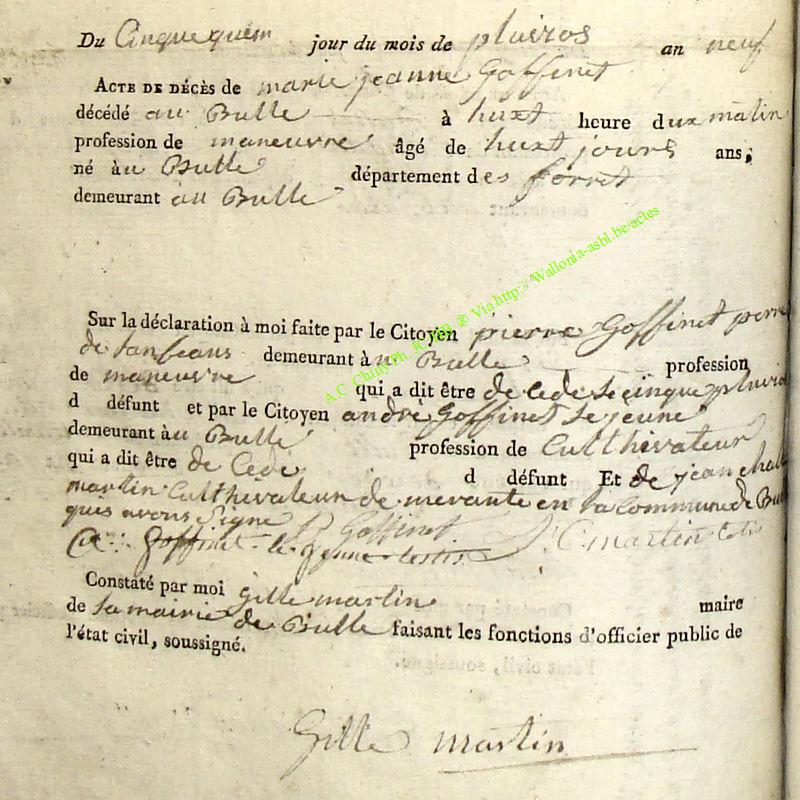 Du Cinquequem jour du mois de pluvros an neuf
ACTE DE DÉCÈS de marie jeanne Goffinet
décédé au Bulle à huxt heure dux matin
profession de maneuvre âgé de huxt jours ans;
né àu Bulle département des forret
demeurant au Bulle
Sur la déclaration à moi faite par le Citoyen pierre Goffinet perre
de lanfeans demeurant àu Bulle profession
de maneuvre qui a dit être de cede le cinque pluvio
d défunt et par le Citoyen andre Goffinet le jeune
demeurant àu Bulle profession de Culthivateur
qui a dit être de Cedé d défunt Et de jean chal
martin Culthivateur de merante en la commune de Bu
quis avons Signe P Goffinet
Goffinet le jeune testis J C martin
Constaté par moi gille martin maire
de la mairie de Bulle faisant les fonctions d'officier public de
l'état civil, soussigné.
Gille martin
A.C. Chiny Ph. ® Via http://Wallonia-asbl.be/actes